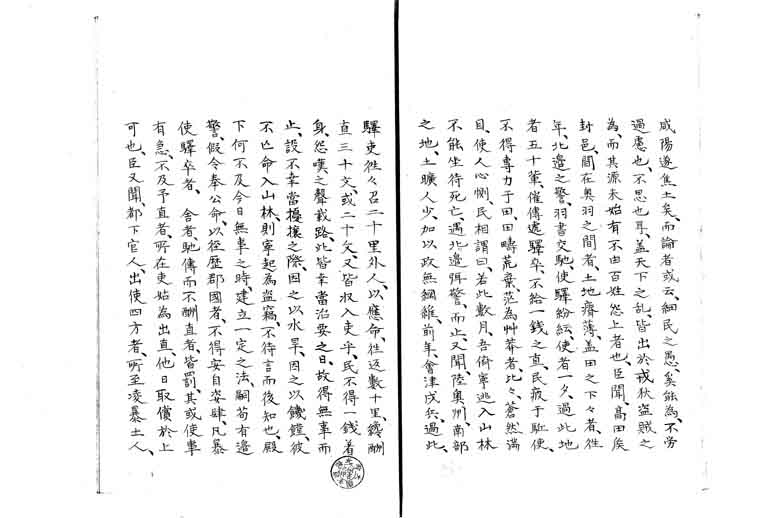 咸陽遂焦土矣、而論者或云、細民之愚、奚能為、不労
過慮也、不思也耳、蓋天下之乱、皆出於戎狄盗賊之
為、而其源未始有不由百姓怨上者也、臣聞、高田矦
封邑、間在奥羽之間者、土地瘠薄、蓋田之下々者、往
年、北邊之警、羽書交馳、使驛紛紜、使者一夕、過此地
者五十輩、催傳遞驛卒、不給一銭之直、民疲于駈使、
不得専力于田、田疇荒棄、茫為艸莽者、比々、蒼然満
目、使人心惻、民相謂曰、若此數月、吾儕寧逃入山林
不能坐待死亡、遇北邊弭警、而止、又聞、陸奥州、南部
之地、土曠人少、加以政無綱維、前年、會津戍兵、過此、
驛吏往々召二十里外人、以應命、往返數十里、錢酬
直三十文、或二十文、又皆収入吏乎、民不得一銭着
身、怨嘆之聲載路、此皆幸當治安之日、故得無事而
止、設不幸當擾攘之際、因之以水旱、因之以饑饉、彼
不亡命入山林、則寧起為盗竊、不待言而後知也、殿
下何不及今日無事之時、建立一定之法、嗣若有邊
警、假令奉公命以徑歴郡國者、不得妄自恣肆、凡暴
使驛卒者、舎者、馳傳而不酬直者、皆罰、其或使事
有急、不及予直者、所在吏姑為出直、他日取償於上
可也、臣又聞、都下官人、出使四方者、所至凌暴土人、